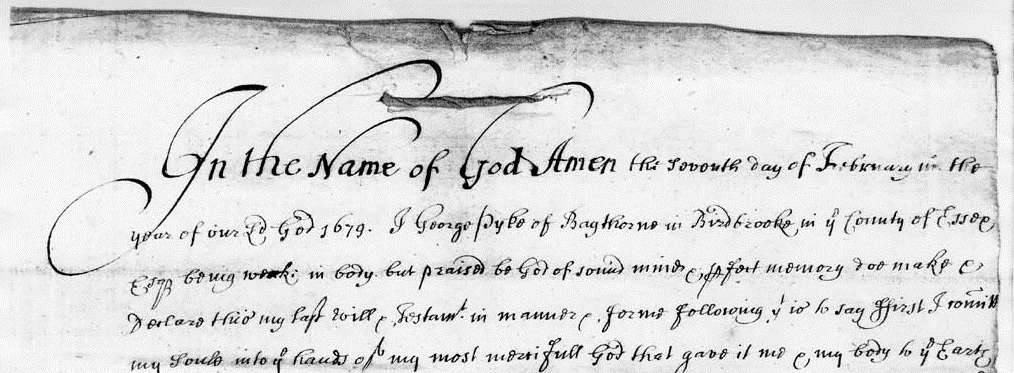 In the Name of God Amen the seventh day of February in the
year of our Ld God 1679. I George Pyke of Baythorne in Birdbrooke in ye County of Essex
Esqr being weake in body but praised be God of sound minde & pfect memory doe make &
Declare this my last will & Testamt in manner & forme following yt is to say ffirst I comitt
my Soule into ye hands of my most mercifull God that gave it me & my body to ye Earth